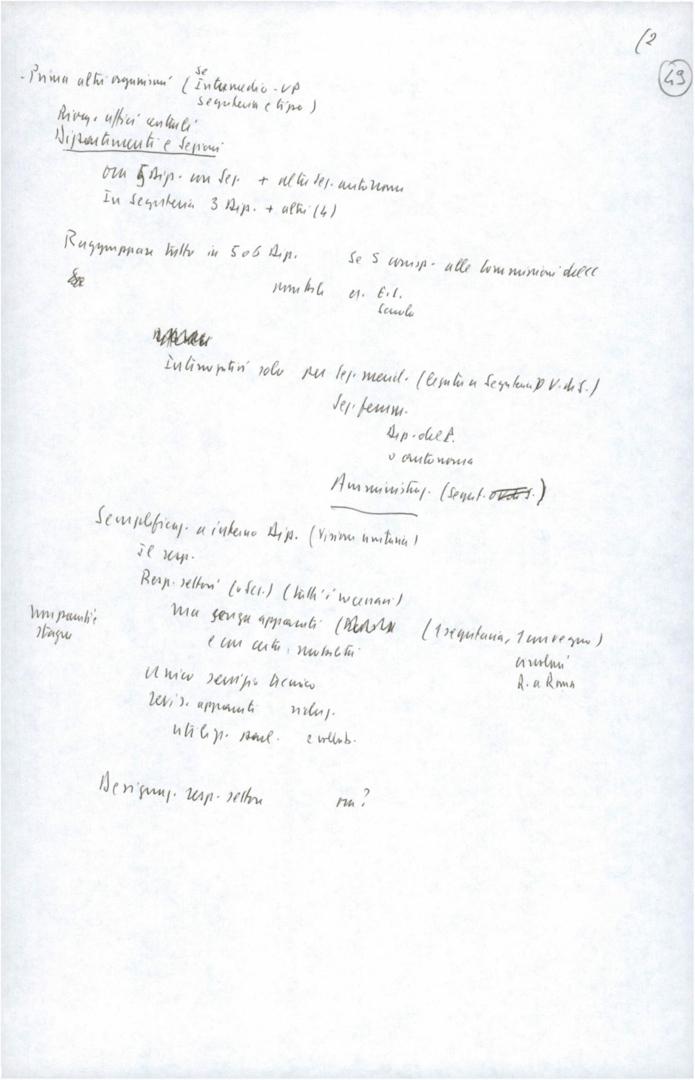 (2
49
- Prima altri organismi (se Intermedio - VP
Segreteria e tipo)
Riorg. uffici centrali
Dipartimenti e Sezioni
ora 5 Dip. con Sez. + altre sez. autonome
In Segreteria 3 Dip. + altri (4)
Raggruppare tutto in 5 o 6 Dip. Se 5 corrisp. alle Commissioni delle
es. E.S.
Scuola
Interrogativi solo per Sez. merid. (legata a Segreteria o V. di S.)
Sez. femm.
Dip. del P.
o autonoma
Amministraz. (Segret.)
Semplificaz. a interno Dip. (Visione unitaria)
il resp.
Resp. settori (o Sez.) (tutti i necessari)
ma senza apparati (1 segretaria, 1 convegno)
e con certa mobilità
R. a Roma
compartì
stagne
Unico servizio tecnico
revis. apparati riduz.
utilizz. e collab.
Designaz. resp. settore ora?